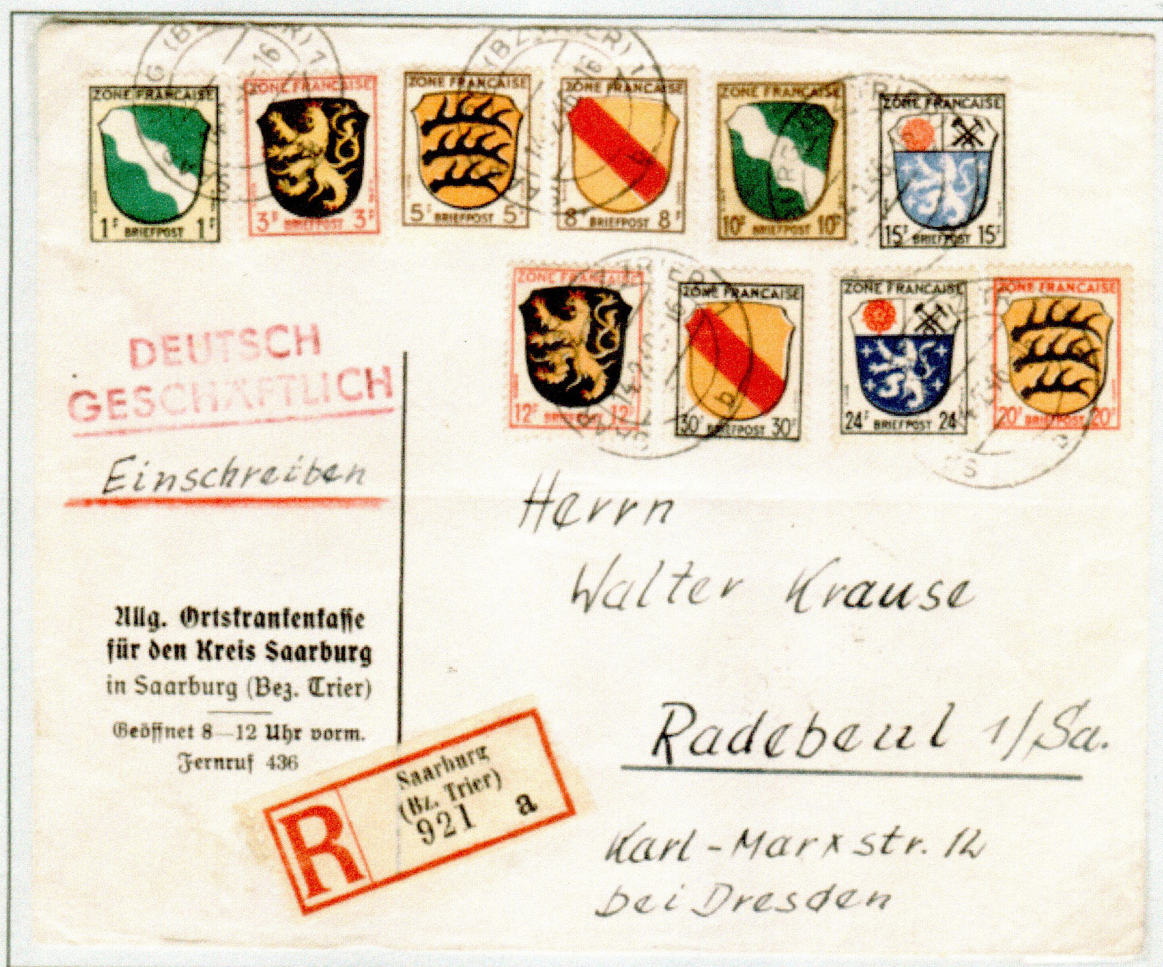 ZONE FRANÇAISE
1F BRIEFPOST 1F
ZONE FRANÇAISE
3F BRIEFPOST 3F
ZONE FRANÇAISE
5F BRIEFPOST 5F
ZONE FRANÇAISE
8F BRIEFPOST 8F
ZONE FRANÇAISE
10F BRIEFPOST 10F
ZONE FRANÇAISE
15F BRIEFPOST 15F
ZONE FRANÇAISE
12F BRIEFPOST 12F
ZONE FRANÇAISE
30F BRIEFPOST 30F
ZONE FRANÇAISE
24F BRIEFPOST 24F
ZONE FRANÇAISE
20F BRIEFPOST 20F
(BZ. TRIER) 1
DEUTSCH
GESCHÄFTLICH
Einschreiben
Allg. Ortskrankenkasse
für den Kreis Saarburg
in Saarburg (Bez. Trier)
Geöffnet 8—12 Uhr vorm.
Fernruf 436
R
Saarburg
(Bz. Trier)
921 a
Herrn
Walter Krause
Radebeul 1/Sa.
Karl-Marxstr. 12
bei Dresden